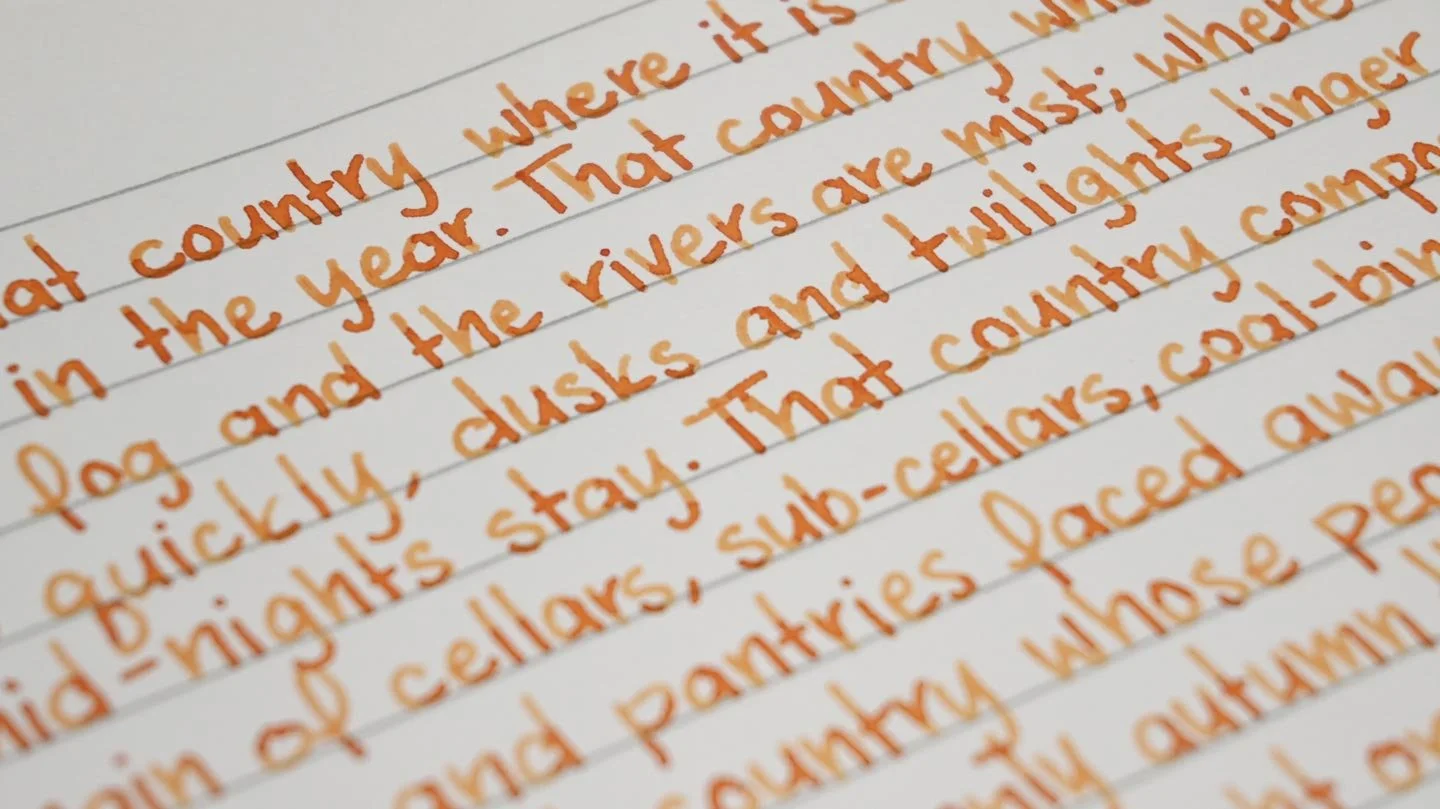 at country where it is
in the year. That country whe
fog and the rivers are mist; where
quickly, dusks and twilights linger
mid-nights stay. That country compo
ain of cellars, sub-cellars, coal-bin
and pantries faced away
country whose peo
only autumn